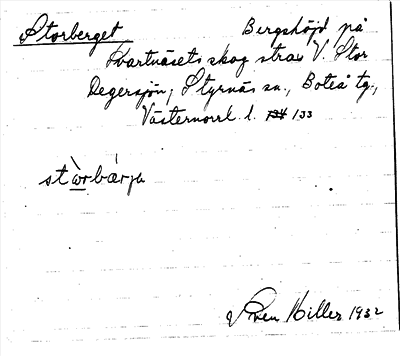 Storberget Bergshöjd på
Svartnäsets skog strax V. Stor
Degersjön, Styrnäs sn., Boteå tg.,
Västernorrl. l. 134 133
stὼrbærja
Sven Hiller 1932